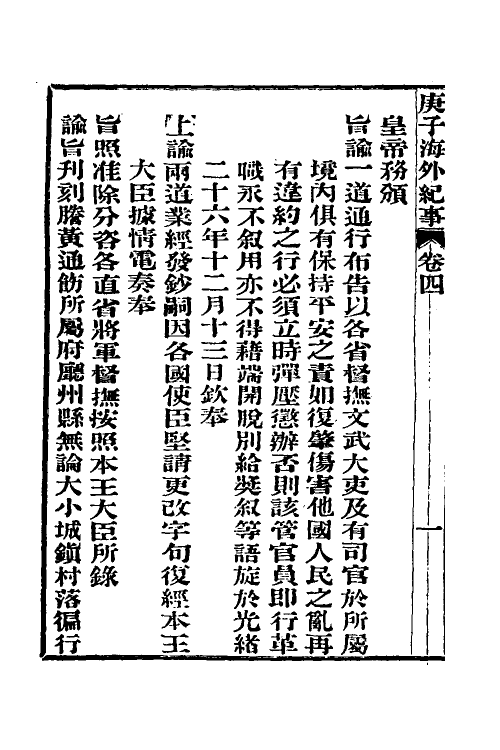 庚子海外紀事 卷四 一
皇帝務頒
旨諭一道通行布告以各省督撫文武大吏及有司官於所屬
境內俱有保持平安之責如復肇傷害他國人民之亂再
有違約之行必須立時彈壓懲辦否則該管官員即行革
職永不叙用亦不得藉端開脫別給奬叙等語旋於光緒
二十六年十二月十三日欽奉
上諭兩道業經發鈔嗣因各國使臣堅請更改字句復經本王
大臣據情電奏奉
旨照准除分咨各直省將軍督撫按照本王大臣所錄
諭旨刊刻謄黃通飭所屬府廳州縣無論大小城鎭村落徧行